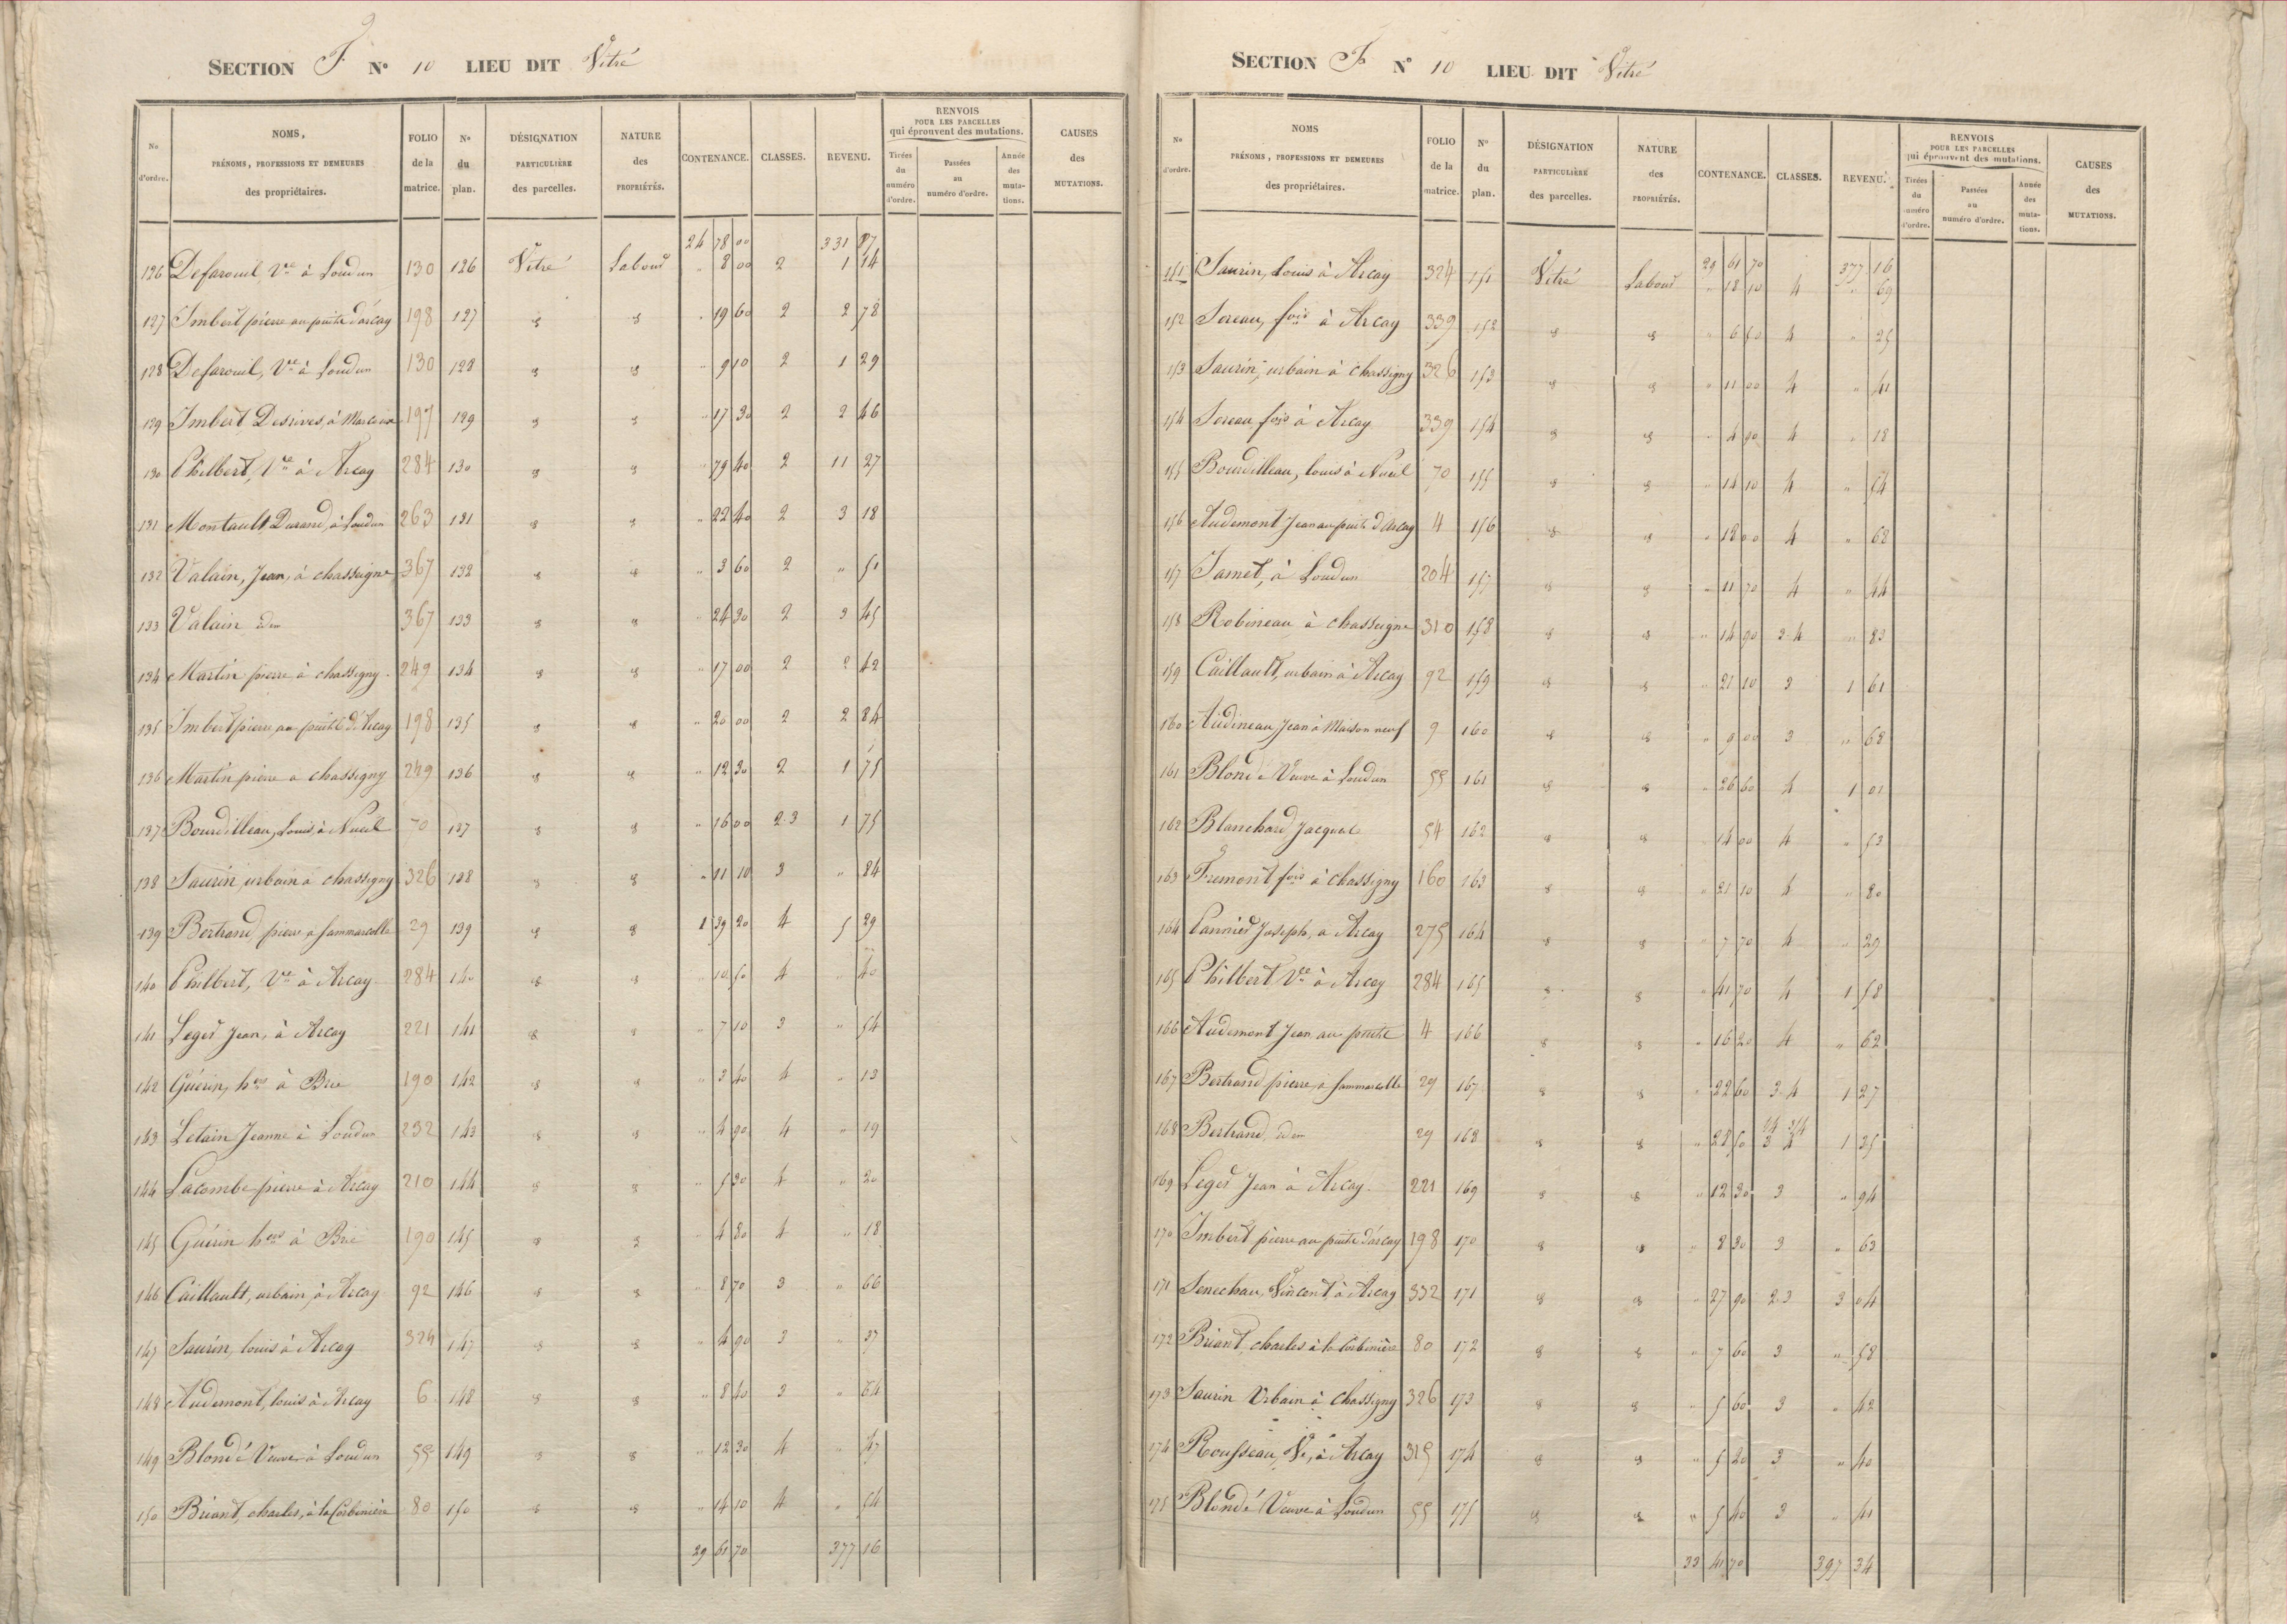 SECTION F. N° 10 LIEU DIT Vitré
Nos d'ordre. NOMS, PRÉNOMS, PROFESSIONS ET DEMEURES des propriétaires. FOLIO de la matrice. Nos du plan. DÉSIGNATION PARTICULIÈRE des parcelles. NATURE des PROPRIÉTÉS. CONTENANCE. CLASSES. REVENU. RENVOIS POUR LES PARCELLES qui éprouvent des mutations. Tirées du numéro d'ordre. Passées au numéro d'ordre. Année des mutations. CAUSES des MUTATIONS.
24 78 00 331 87
126 Defarouil Ve à Loudun 130 126 Vitré Labour " 8 00 2 1 14
127 Imbert pierre au puits d'arcay 198 127 " " " 19 60 2 2 78
128 Defarouil, Ve à Loudun 130 128 " " " 9 10 2 1 29
129 Imbert Desrives, à 197 129 " " " 17 30 2 2 46
130 Philbert, Ve à Arcay 284 130 " " " 79 40 2 11 27
131 Montault Durand, à Loudun 263 131 " " " 22 40 2 3 18
132 Valain, Jean, à chasseigne 367 132 " " " 3 60 2 " 51
133 Valain idem 367 133 " " " 24 30 2 3 45
134 Martin pierre à chassigny 249 134 " " " 17 00 2 2 42
135 Imbert pierre, au puits d'Arcay 198 135 " " " 20 00 2 2 84
136 Martin pierre à chassigny 249 136 " " " 12 30 2 1 75
137 Bourdilleau, Louis, à Nueil 70 137 " " " 16 00 2.3 1 75
138 Saurin, urbain à chassigny 326 138 " " " 11 10 3 " 84
139 Bertrand pierre à Sammarcolle 29 139 " " 1 39 20 4 5 29
140 Philbert, Ve à Arcay 284 140 " " " 10 50 4 " 40
141 Leger Jean, à Arcay 221 141 " " " 7 10 3 " 54
142 Guérin, hers à Brie 190 142 " " " 3 40 4 " 13
143 Letain Jeanne à Loudun 232 143 " " " 4 90 4 " 19
144 Lacombe pierre à Arcay 210 144 " " " 5 30 4 " 20
145 Guérin hers à Brie 190 145 " " " 4 80 4 " 18
146 Caillault, urbain, à Arcay 92 146 " " " 8 70 3 " 66
147 Saurin, louis à Arcay 324 147 " " " 4 90 3 " 37
148 Audemont, louis à Arcay 6 148 " " " 8 40 3 " 64
149 Blondé Veuve à Loudun 55 149 " " " 12 30 4 " 47
150 Briant, charles, à la Corbinière 80 150 " " " 14 10 4 " 54
29 61 70 377 16
SECTION F N° 10 LIEU DIT Vitré
Nos d'ordre. NOMS PRÉNOMS, PROFESSIONS ET DEMEURES des propriétaires. FOLIO de la matrice. Nos du plan. DÉSIGNATION PARTICULIÈRE des parcelles. NATURE des PROPRIÉTÉS. CONTENANCE. CLASSES. REVENU. RENVOIS POUR LES PARCELLES qui éprouvent des mutations. Tirées du numéro d'ordre. Passées au numéro d'ordre. Année des mutations. CAUSES des MUTATIONS.
29 61 70 377 16
151 Saurin, Louis à Arcay 324 151 Vitré Labour " 18 10 4 " 69
152 Sereau, fois à Arcay 339 152 " " " 6 50 4 " 25
153 Saurin, urbain à chassigny 326 153 " " " 11 00 4 " 41
154 Sereau fois à Arcay 339 154 " " " 4 90 4 " 18
155 Bourdilleau, louis à Nueil 70 155 " " " 14 10 4 " 54
156 Audemont Jean au puits d'Arcay 4 156 " " " 18 00 4 " 68
157 Jamet, à Loudun 204 157 " " " 11 70 4 " 44
158 Robineau à chasseigne 310 158 " " " 14 90 3.4 " 83
159 Caillault, urbain à Arcay 92 159 " " " 21 10 3 1 61
160 Audineau, Jean à Maison neuf 9 160 " " " 9 00 3 " 68
161 Blondé Veuve à Loudun 55 161 " " " 26 60 4 1 01
162 Blanchard Jacques 54 162 " " " 14 00 4 " 53
163 Fremont fois à chassigny 160 163 " " " 21 10 4 " 80
164 Pannier Joseph, à Arcay 275 164 " " " 7 70 4 " 29
165 Philbert Ve à Arcay 284 165 " " " 41 70 4 1 58
166 Audemont Jean au puits 4 166 " " " 16 20 4 " 62
167 Bertrand pierre, à Sammarcolle 29 167 " " " 22 60 3.4 1 27
168 Bertrand, idem 29 168 " " " 28 50 1/4 3/4 3 4 1 35
169 Leger Jean à Arcay. 221 169 " " " 12 30 3 " 94
170 Imbert pierre au puits d'arcay 198 170 " " " 8 30 3 " 63
171 Senechau, Vincent, à Arcay 332 171 " " " 27 90 2.3 3 04
172 Briant, charles à la Corbinière 80 172 " " " 7 60 3 " 58
173 Saurin Urbain à chassigny 326 173 " " " 5 60 3 " 42
174 Rousseau, Ve, à Arcay 315 174 " " " 5 20 3 " 40
175 Blondé Veuve à Loudun 55 175 " " " 5 40 3 " 41
33 41 70 397 34